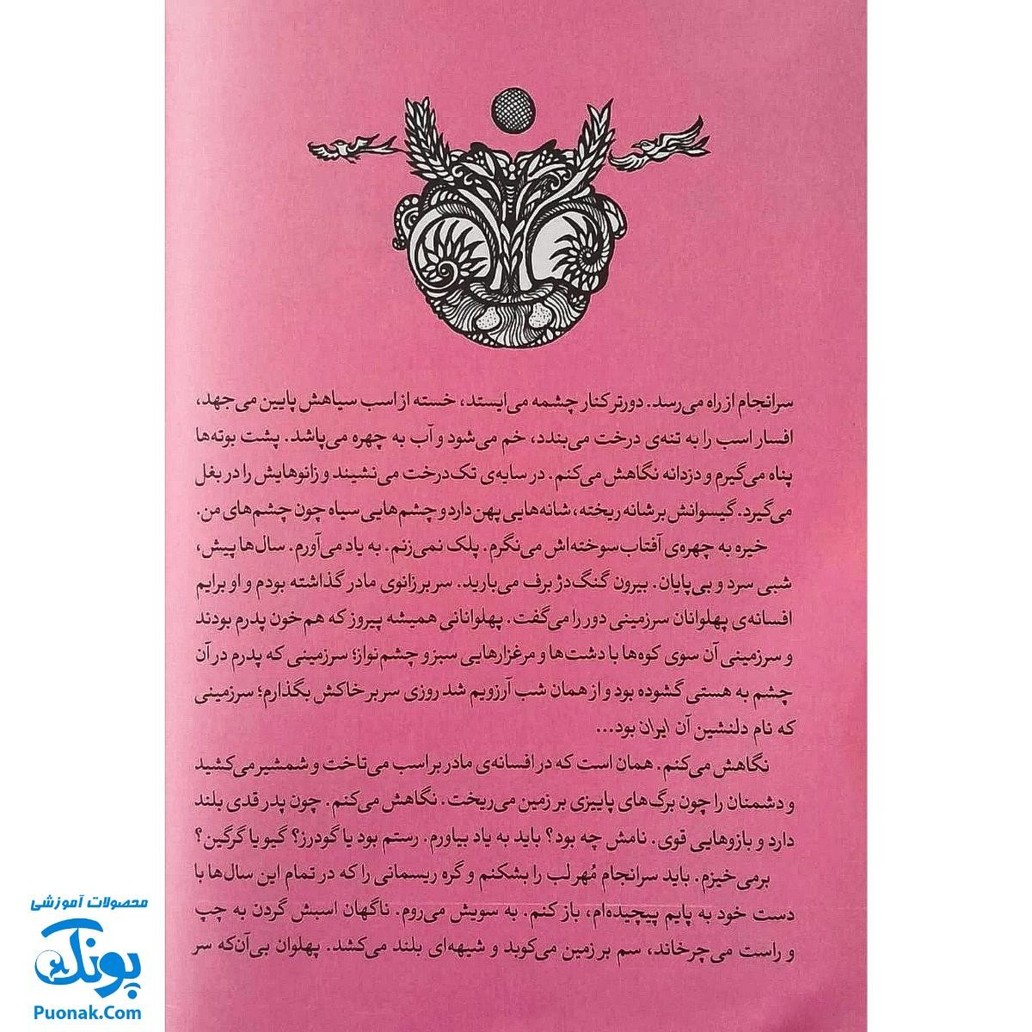 سرانجام از راه می‌رسد. دورتر کنار چشمه می‌ایستد، خسته از اسب سیاهش پایین می‌جهد،
افسار اسب را به تنه‌ی درخت می‌بندد، خم می‌شود و آب به چهره می‌پاشد. پشت بوته‌ها
پناه می‌گیرم و دزدانه نگاهش می‌کنم. در سایه‌ی تک‌درخت می‌نشیند و زانوهایش را در بغل
می‌گیرد. گیسوانش بر شانه ریخته، شانه‌هایی پهن دارد و چشم‌هایی سیاه چون چشم‌های من.
خیره به چهره‌ی آفتاب سوخته‌اش می‌نگرم. پلک نمی‌زنم. به یاد می‌آورم. سال‌ها پیش،
شبی سرد و بی‌پایان. بیرون گنگ‌دژ برف می‌بارید. سر بر زانوی مادر گذاشته بودم و او برایم
افسانه‌ی پهلوانان سرزمینی دور را می‌گفت. پهلوانانی همیشه پیروز که هم‌خون پدرم بودند
و سرزمینی آن سوی کوه‌ها با دشت‌ها و مرغزارهایی سبز و چشم‌نواز؛ سرزمینی که پدرم در آن
چشم به هستی گشوده بود و از همان شب آرزویم شد روزی سر بر خاکش بگذارم؛ سرزمینی
که نام دلنشین آن ایران بود...
نگاهش می‌کنم. همان است که در افسانه‌ی مادر بر اسب می‌تاخت و شمشیر می‌کشید
و دشمنان را چون برگ‌های پاییزی بر زمین می‌ریخت. نگاهش می‌کنم. چون پدر قدی بلند
دارد و بازوهایی قوی. نامش چه بود؟ باید به یاد بیاورم. رستم بود یا گودرز؟ گیو یا گرگین؟
برمی‌خیزم. باید سرانجام مُهر لب را بشکنم و گره ریسمانی را که در تمام این سال‌ها با
دست خود به پایم پیچیده‌ام، باز کنم. به سویش می‌روم. ناگهان اسبش گردن به چپ
و راست می‌چرخاند، سم بر زمین می‌کوبد و شیهه‌ای بلند می‌کشد. پهلوان بی‌آن‌که سر
محصولات آموزشی
پونک
Puonak.Com